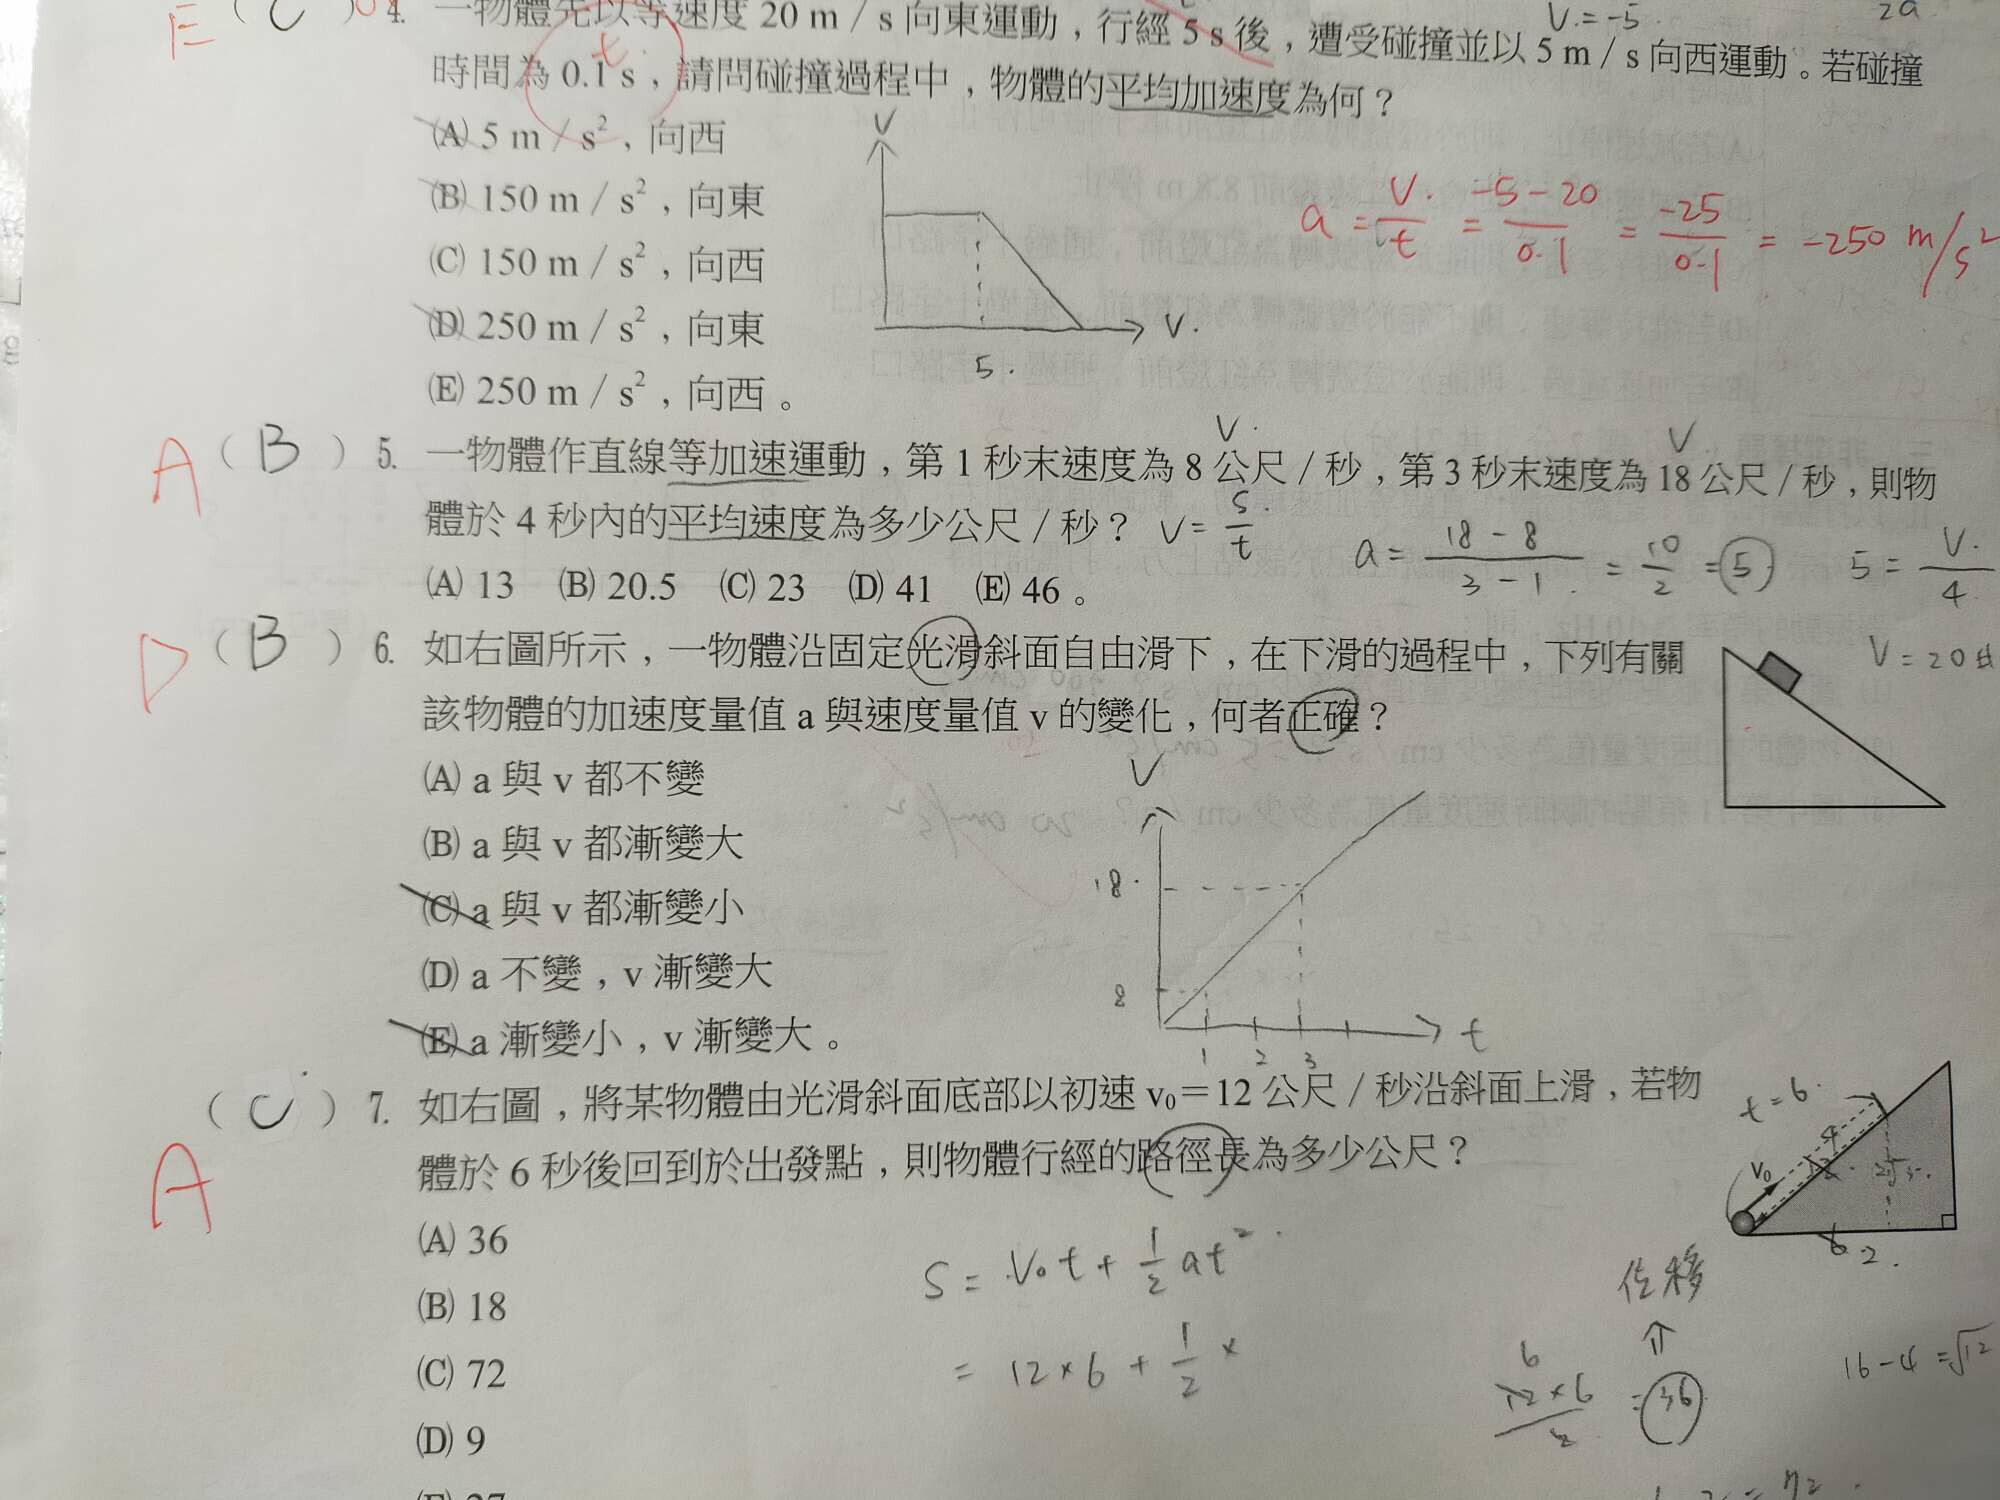 E ( C ) 4. 一物體先以等速度 20 m / s 向東運動，行經 5 s 後，遭受碰撞並以 5 m / s 向西運動。若碰撞
V.=-5.
2a
t.
時間為 0.1 s，請問碰撞過程中，物體的平均加速度為何？
(A) 5 m / s²，向西
(B) 150 m / s²，向東
(C) 150 m / s²，向西
(D) 250 m / s²，向東
(E) 250 m / s²，向西。
V
V.
5.
a = V./t = -5-20/0.1 = -25/0.1 = -250 m/s²
A ( B ) 5. 一物體作直線等加速運動，第 1 秒末速度為 8 公尺 / 秒，第 3 秒末速度為 18 公尺 / 秒，則物
V.
V
體於 4 秒內的平均速度為多少公尺 / 秒？
V = S./t
a = 18-8/3-1 = 10/2 = 5
5 = V./4
(A) 13 (B) 20.5 (C) 23 (D) 41 (E) 46。
V = 20
D ( B ) 6. 如右圖所示，一物體沿固定光滑斜面自由滑下，在下滑的過程中，下列有關
該物體的加速度量值 a 與速度量值 v 的變化，何者正確？
(A) a 與 v 都不變
(B) a 與 v 都漸變大
(C) a 與 v 都漸變小
(D) a 不變，v 漸變大
(E) a 漸變小，v 漸變大。
V
18.
8
1 2 3
t
A ( C ) 7. 如右圖，將某物體由光滑斜面底部以初速 v₀＝12 公尺 / 秒沿斜面上滑，若物
體於 6 秒後回到於出發點，則物體行經的路徑長為多少公尺？
t = 6.
4
12.
v₀
6 2.
(A) 36
(B) 18
(C) 72
(D) 9
S = V₀t + 1/2 at².
= 12×6 + 1/2 ×
位移
⇑
6
12×6/2 = 36
16-4 = √12
= 72.